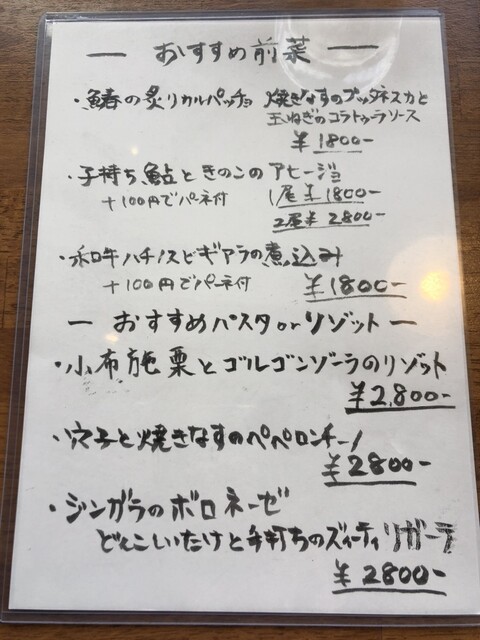 ― おすすめ前菜 ―
・鰆の炙りカルパッチョ 焼きなすのプッタネスカと
玉ねぎのコラトゥーラソース
¥1800-
・子持ち鮎ときのこのアヒージョ
+100円でパーネ付 1尾¥1800-
2尾¥2800-
・和牛ハチノスとギアラの煮込み
+100円でパーネ付 ¥1800-
― おすすめパスタorリゾット ―
・小布施栗とゴルゴンゾーラのリゾット
¥2,800-
・穴子と焼きなすのペペロンチーノ
¥2800-
・ジンガラのボロネーゼ
どんこしいたけと手打ちのズィーティリガーテ
¥2800-